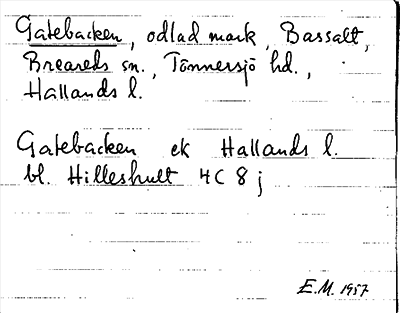 Gatebacken, odlad mark, Bassalt,
Breareds sn., Tönnersjö hd.,
Hallands l.
Gatebacken ek Hallands l.
bl. Hilleshult 4C 8j
E.M. 1957